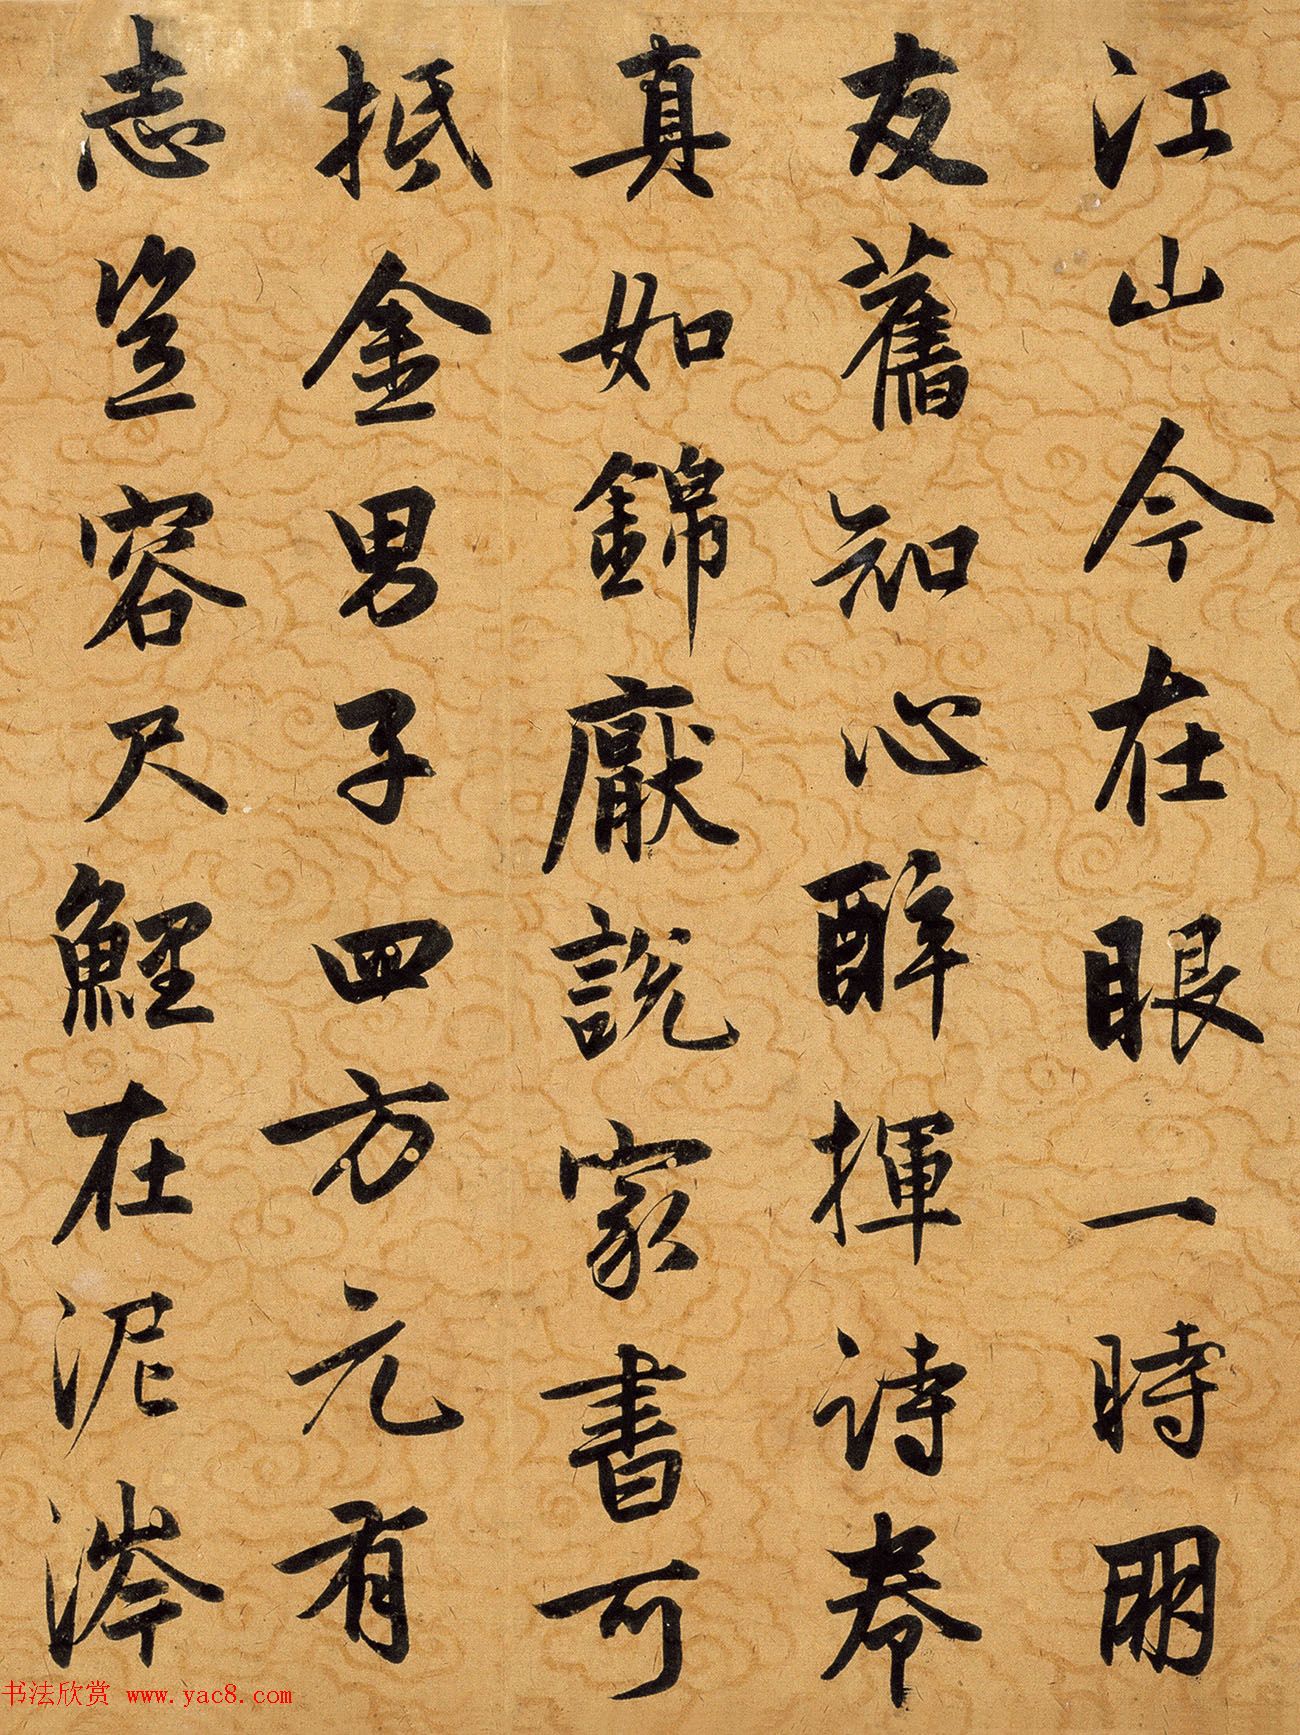 江山今在眼一時朋
友舊知心醉揮詩卷
真如錦厭說家書可
抵金男子四方元有
志豈容尺鯉在泥涔
书法欣赏 www.yac8.com